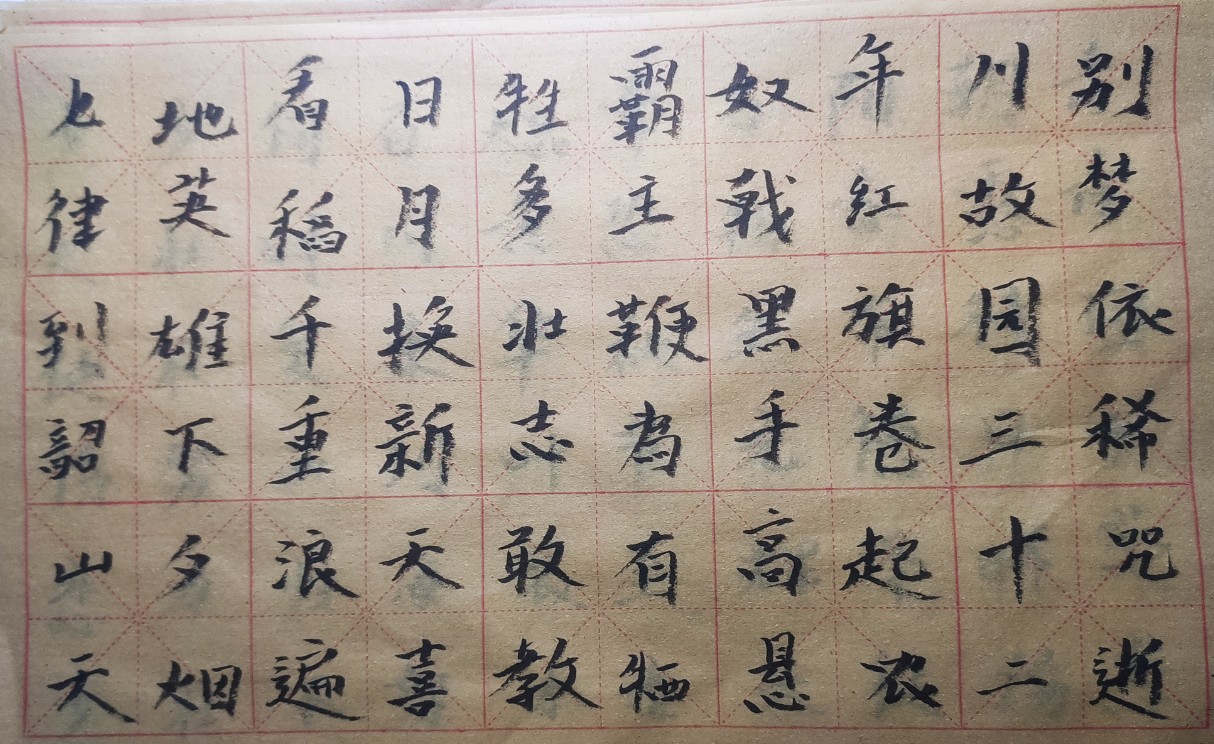 别梦依稀咒逝
川故园三十二
年红旗卷起农
奴戟黑手高悬
霸主鞭為有牺
牲多壮志敢教
日月换新天喜
看稻千重浪遍
地英雄下夕烟
七律到韶山天